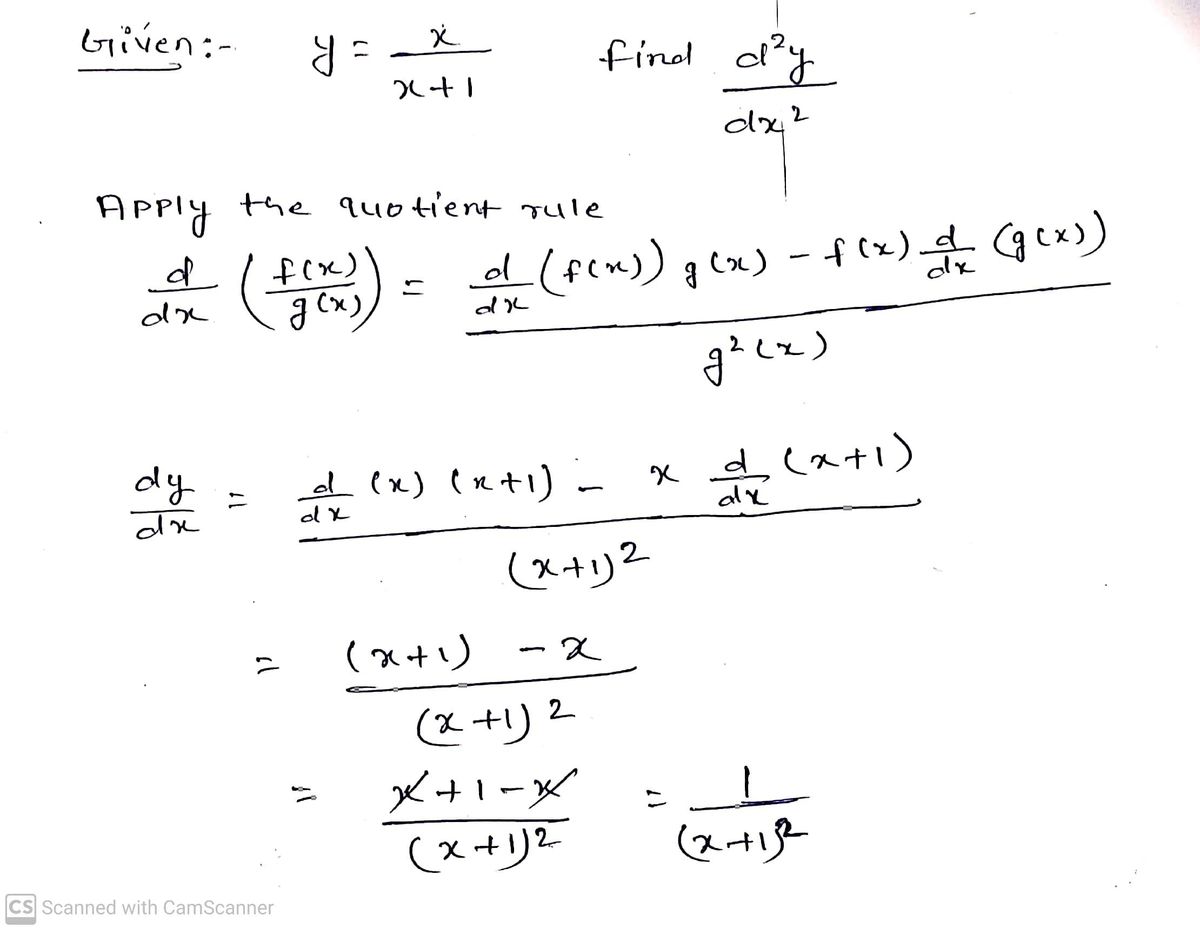 Given:- y = x/(x+1) find d²y/dx²
Apply the quotient rule
d/dx (f(x)/g(x)) = (d/dx (f(x)) g(x) - f(x) d/dx (g(x)))/g²(x)
dy/dx = (d/dx (x) (x+1) - x d/dx (x+1))/(x+1)²
= ((x+1) - x)/(x+1)²
= (x+1-x)/(x+1)² = 1/(x+1)²
CS Scanned with CamScanner